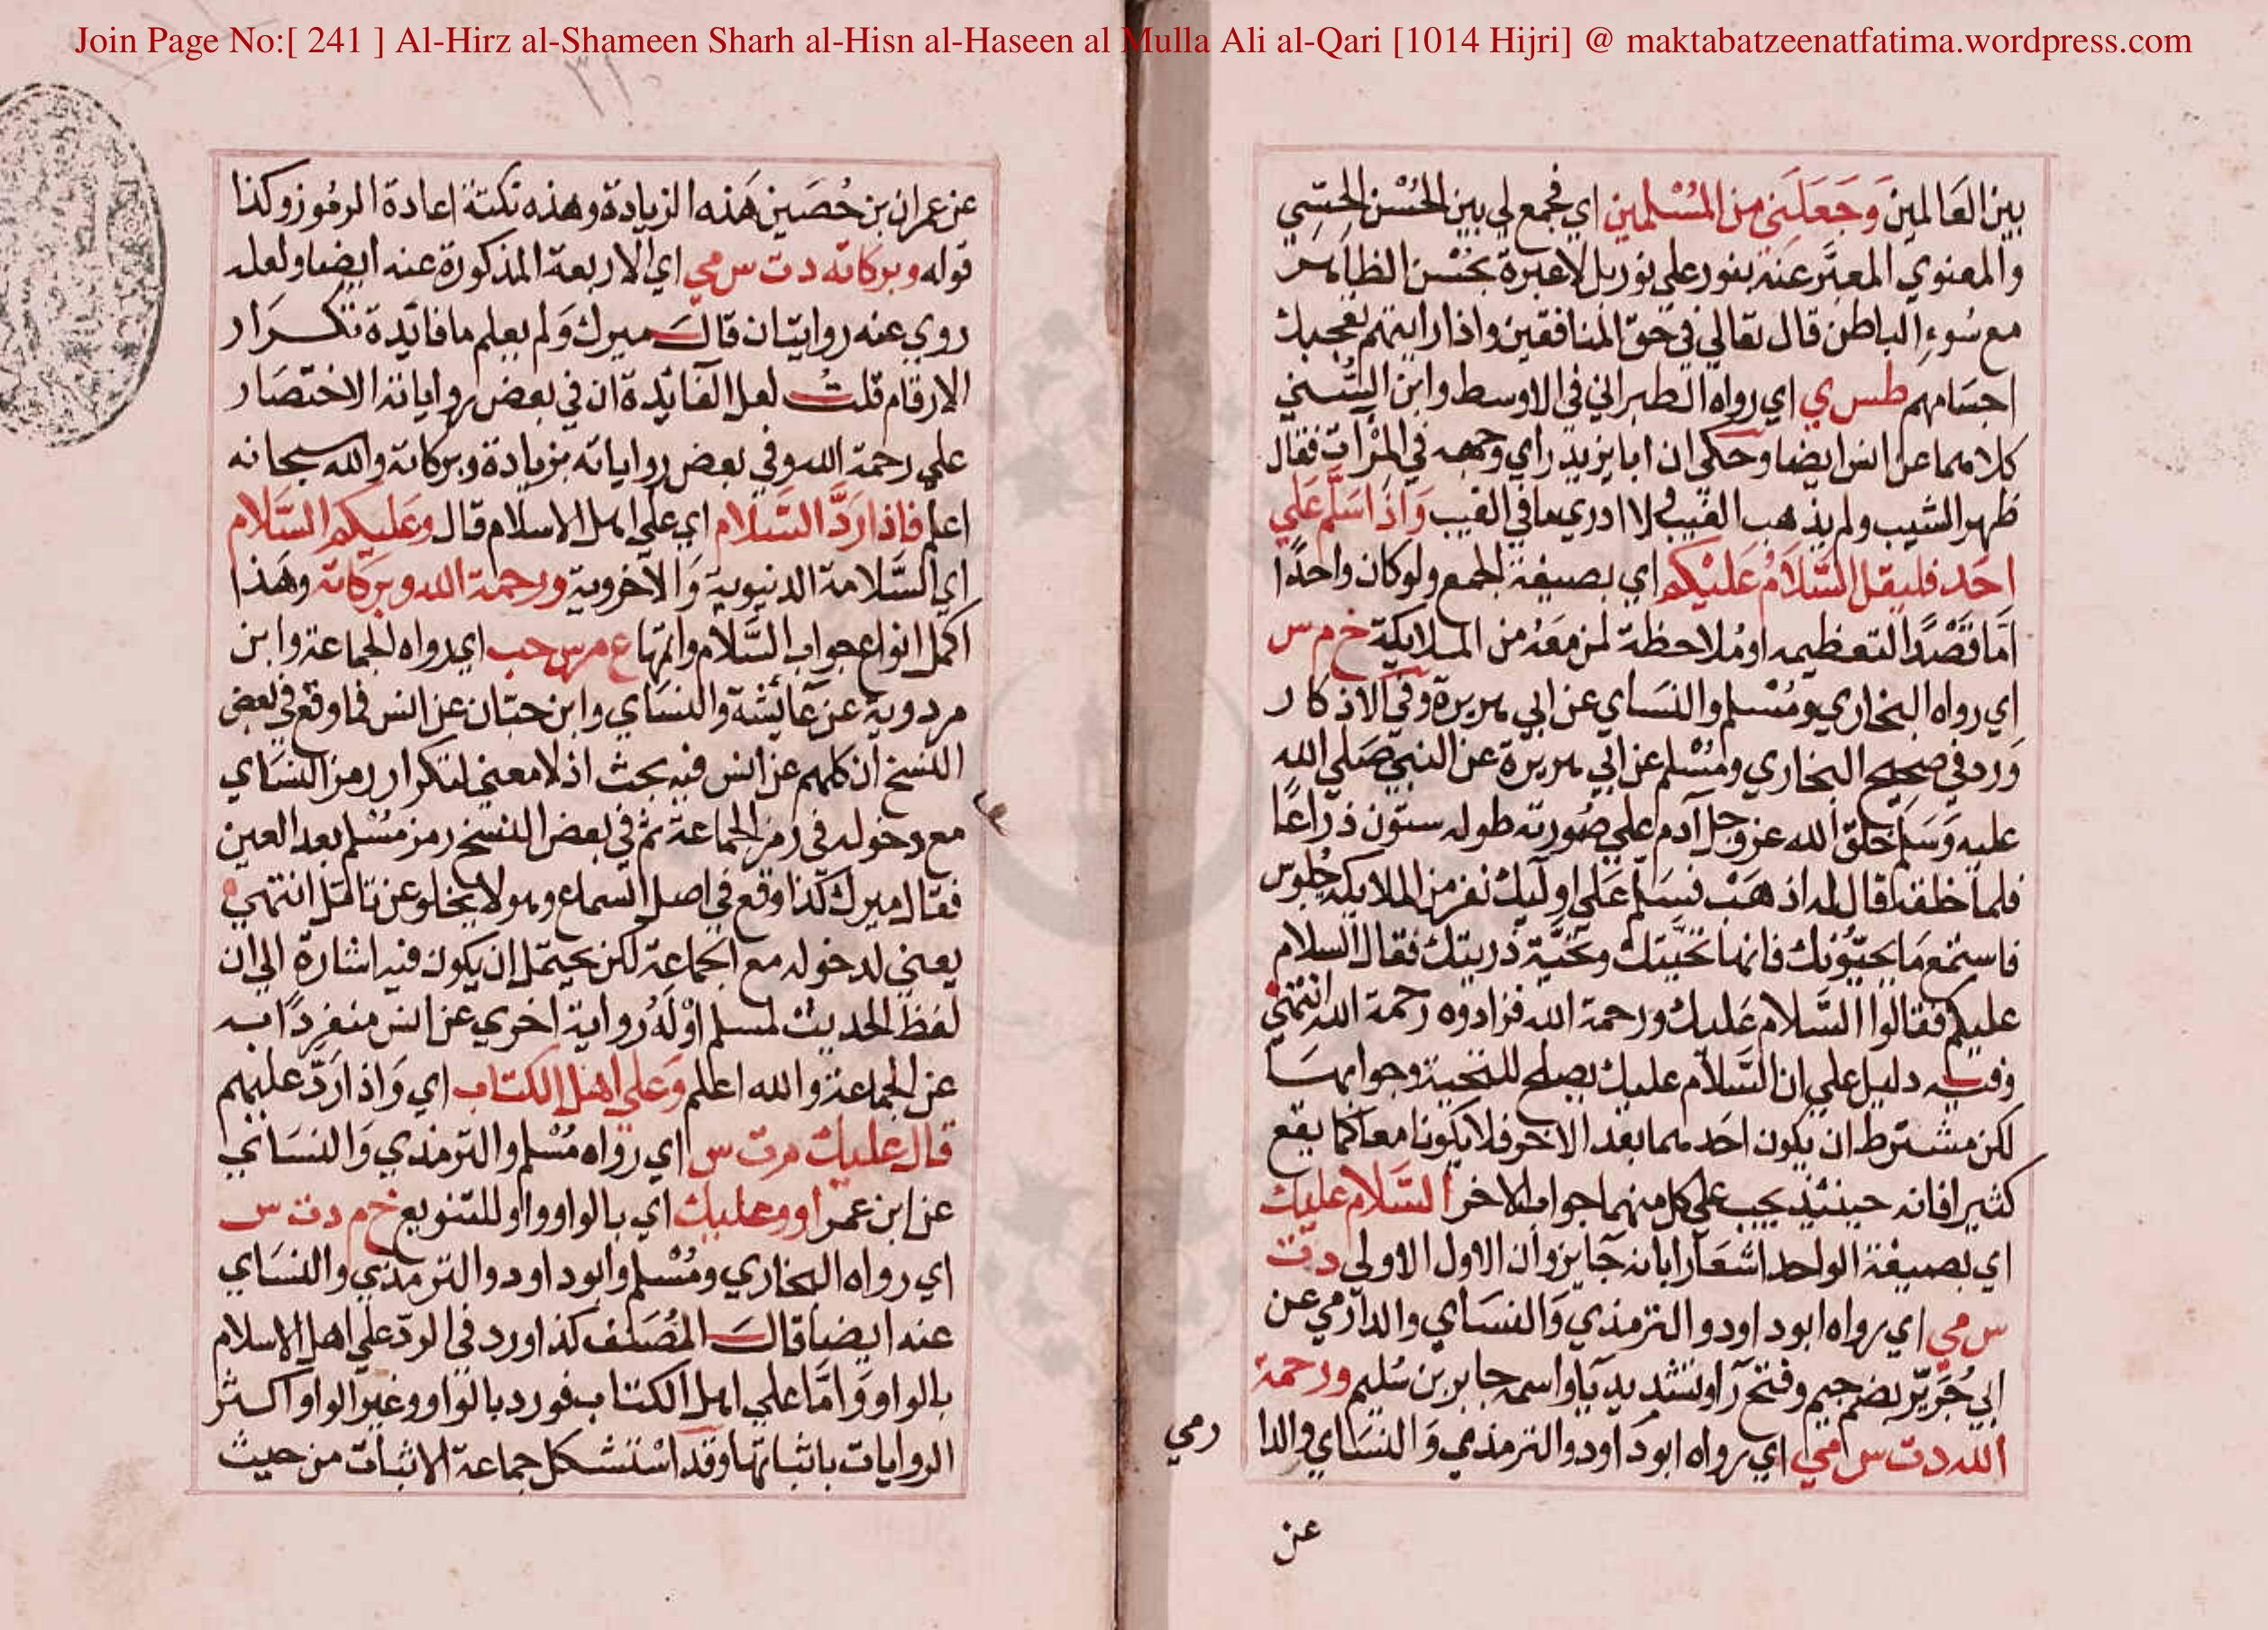 Join Page No:[ 241 ] Al-Hirz al-Shameen Sharh al-Hisn al-Haseen al Mulla Ali al-Qari [1014 Hijri] @ maktabatzeenatfatima.wordpress.com
بين العَالمين وَجَعَلَني من المُسْلمين اي فجمع لي بين الحُسْن الحِسّي
والمعنوي المعبَّر عنه بنور علي نور بل لا عبرة بحُسْن الظاهر
مع سُوءِ الباطن قال تعالي في حقّ المنافقين واذا رايتهم تعجبك
اجسَامهم طس ي اي رواه الطبراني في الاوسط وابن السُّني
كلاهما عن انس ايضا وحكي ان ابا يزيد راي وجهه في المرْات فقال
ظهر الشيب ولم يذهب العيب ولا ادري ما في الغيب وَاذَا سَلَّم عَلي
احَد فليقل السَّلَامُ عَليْكم اي بصيغة الجمع ولو كان واحدًا
اَمّا قَصْدًا لتعظيمه او مُلاحظة لمن مَعَهُ من الملايكة خ م س
اي رواه البخاري ومُسْلم والنسَاي عن ابي هريرة وفي الاذكار
وَرد في صحيح البخاري ومُسْلم عن ابي هريرة عن النبي صَلي الله
عليه وَسَلم خلق الله عز وجل آدم علي صُورته طوله ستون ذراعًا
فلما خلقه قال له اذهَبْ فسَلّم عَلي اولَيك نفر من الملايكه جُلوس
فاستمع مَا يحيّونك فانها تحَيّتك وتحيَّة ذريتك فقال السلام
عليكم فقالوا السَّلام عَليك ورحمة الله فزادوه رحمة الله انتهي
وفيه دليل علي ان السَّلام عليك يصلح للتحية وجوابهَا
لكن مشترط ان يكون احَدهما بعد الاخر فلا يكونا معا كما يقع
كثيرا فانه حينئذ يجب علي كل منهما جواب الاخر السَّلام عليك
اي بصيغة الواحد اشعَارا بانه جَايز وان الاول الاولي د ت
س مي اي رواه ابو داود والترمذي وَالنسَاي والدارمي عن
ابي جُرَيّ بضم جيم وفتح رَا وتشديد يَا واسمه جابر بن سُليم ورحمة
الله د ت س مي اي رواه ابو داود والترمذي وَالنسَاي والدا
رمي
عن
عن عمران بن حُصَين هَذه الزيادة وهذه نكتة اعادة الرمُوز وكذا
قوله وبركاته د ت س مي اي الاربعة المذكورة عنه ايضا ولعله
روي عنه روايتان قالَ ميرك وَلم يعلم ما فائدة تكرَار
الارقام قلتُ لعل الفائدة ان في بعض رواياته الاختصَار
علي رحمة الله وفي بعض رواياته بزيادة وبركاته والله سبحانه
اعلم فاذا رَدَّ السَّلام اي علي اهل الاسلام قال وعَليكم السَّلام
اي السَّلامة الدنيوية وَالاخروية ورحمة الله وبرَكاته وهَذا
اكمل انواع جواب السَّلام واتمها ع مر س حب اي رواه الجماعة وابن
مردوية عن عَائشة والنسَاي وابن حبّان عن انس فما وقع في بعض
النسخ ان كلهم عن انس فيه بحث اذ لا معني لتكرار رمز النسَاي
مع دخوله في رمز الجماعة ثم في بعض النسخ رمز مُسْلم بعد العين
فقال ميرك كَذا وقع في اصل السماع وهو لا يخلو عن تامّل انتهي
يعني لدخوله مع الجماعة لكن يحتمل ان يكون فيه اشارة الي ان
لفظ الحديث لمسلم اوْ لَهُ رواية اخري عن انس منفردًا به
عن الجماعة والله اعلم وَعَلي اهل الكتاب اي وَاذا رَدّ عليهم
قال عليك م ت س اي رواه مُسْلم والترمذي وَالنسَائي
عن ابن عمر او وعليك اي بالواو واو للتنويع خ م د ت س
اي رواه البخاري ومُسْلم وابو داود والترمذي والنسَاي
عنه ايضا قالَ المُصَنف كذا ورد في الردّ علي اهل الاسلام
بالواو وَامَّا علي اهل الكتاب فورد بالواو وغير الواو اكثر
الروايات باثباتها وقد اسْتشكل جماعة الاثبات من حيث